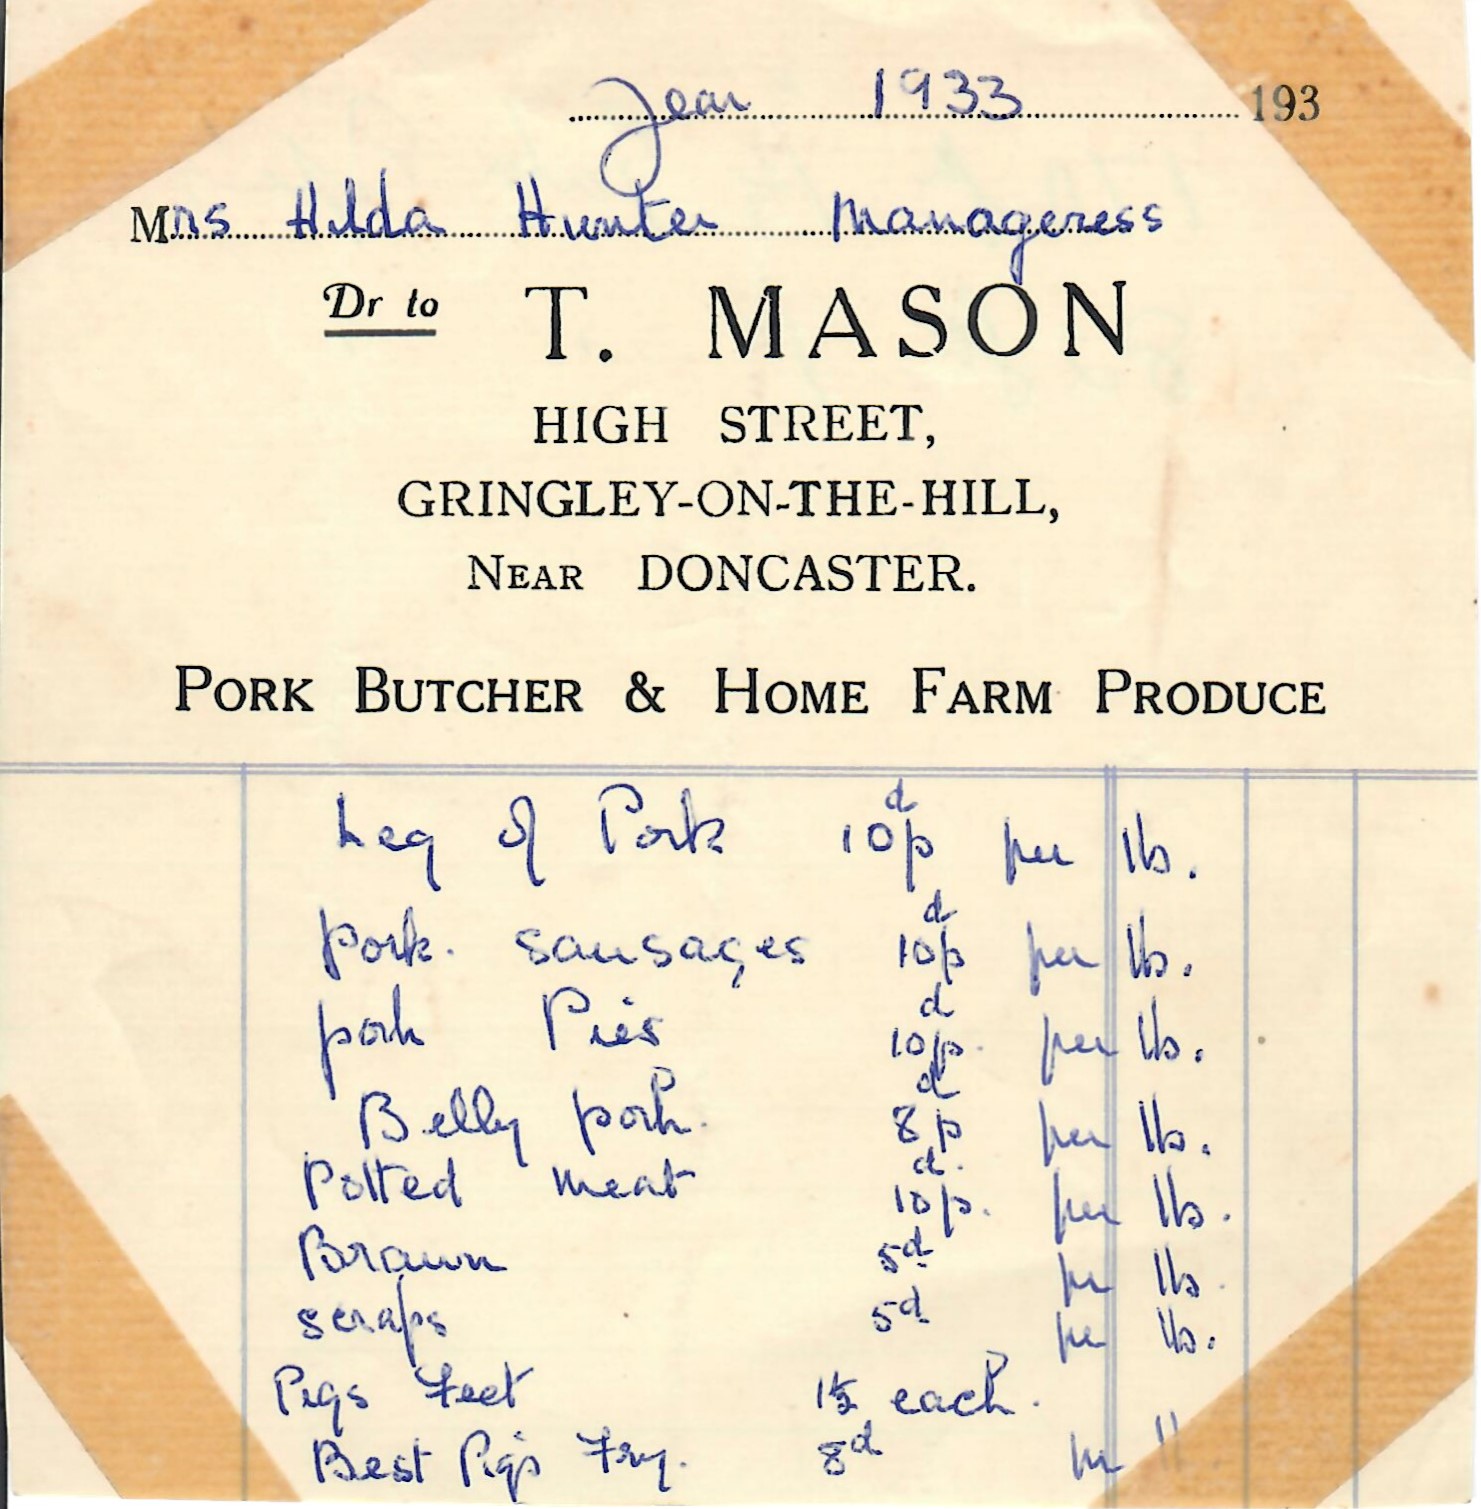 Year 1933 193
Mrs Hilda Hunter Manageress
Dr to T. MASON
HIGH STREET,
GRINGLEY-ON-THE-HILL,
NEAR DONCASTER.
PORK BUTCHER & HOME FARM PRODUCE
Leg of Pork 10p d per lb.
pork. sausages 10p d per lb.
pork Pies 10p. d per lb.
Belly pork. 8p d per lb.
Potted meat 10p. d. per lb.
Brawn 5d per lb.
scraps 5d per lb.
Pigs Feet 1½ each.
Best Pigs Fry. 8d per